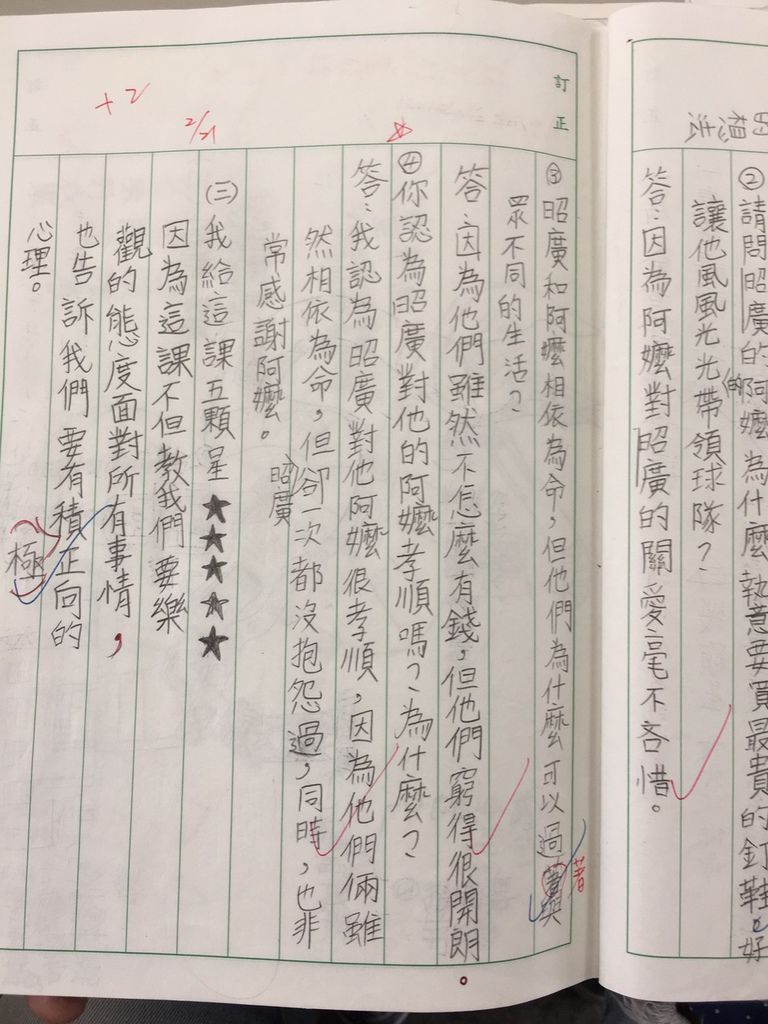 的想法
②請問昭廣的阿嬤為什麼執意要買最貴的釘鞋好
(的)
讓他風風光光帶領球隊？
答：因為阿嬤對昭廣的關愛毫不吝惜。
訂正
③昭廣和阿嬤相依為命，但他們為什麼可以過著與
著
眾不同的生活？
答：因為他們雖然不怎麼有錢，但他們窮得很開朗。
④你認為昭廣對他的阿嬤孝順嗎？為什麼？
答：我認為昭廣對他阿嬤很孝順，因為他們倆雖
然相依為命，但卻一次都沒抱怨過，同時，也非
昭廣
常感謝阿嬤。
(三)我給這課五顆星★★★★★
2/21
因為這課不但教我們要樂
+2
觀的態度面對所有事情，
也告訴我們要有積正向的
極
心理。